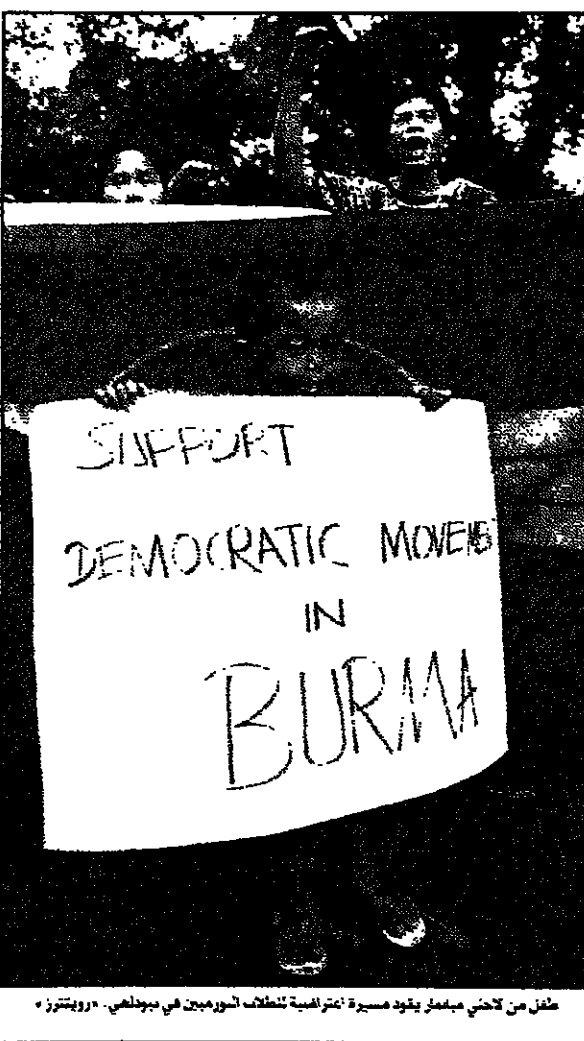 SUPPORT
DEMOCRATIC MOVEMENT
IN
BURMA
طفل من لاجئي ميانمار يقود مسيرة اعتراضية للطلاب البورميين في نيودلهي. «رويترز»